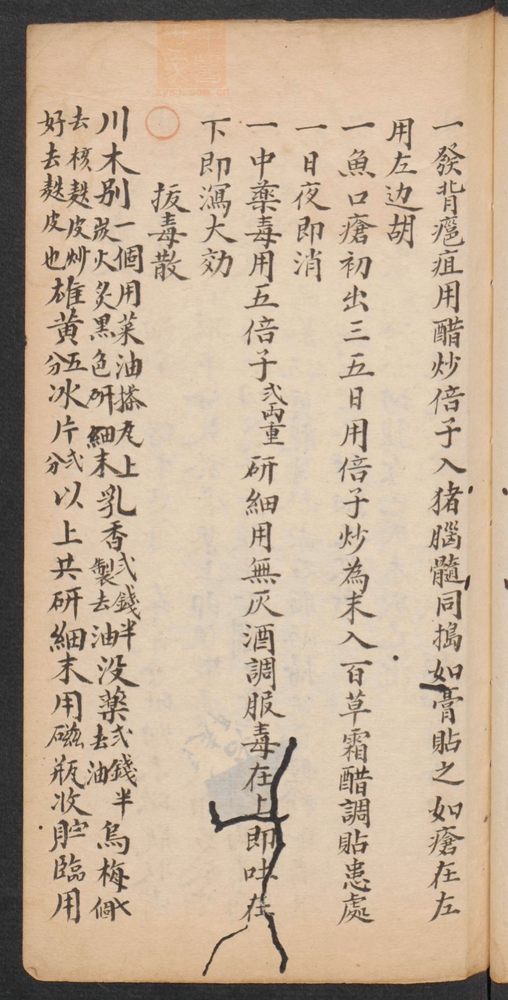 一發背癰疽用醋炒倍子入猪腦髓同搗如膏貼之如瘡在左
用左边胡
一魚口瘡初出三五日用倍子炒為末入百草霜醋調貼患處
一日夜即消
一中藥毒用五倍子弍両重研細用無灰酒調服毒在上即吐在
下即瀉大効
拔毒散
川木別一個用菜油搽尭上炭火炙黑色研細末乳香弍錢半製去油没藥弍錢半去油烏梅個
去核麸皮炒
好去麸皮也雄黄五分冰片弍分以上共研細末用磁瓶收貯臨用